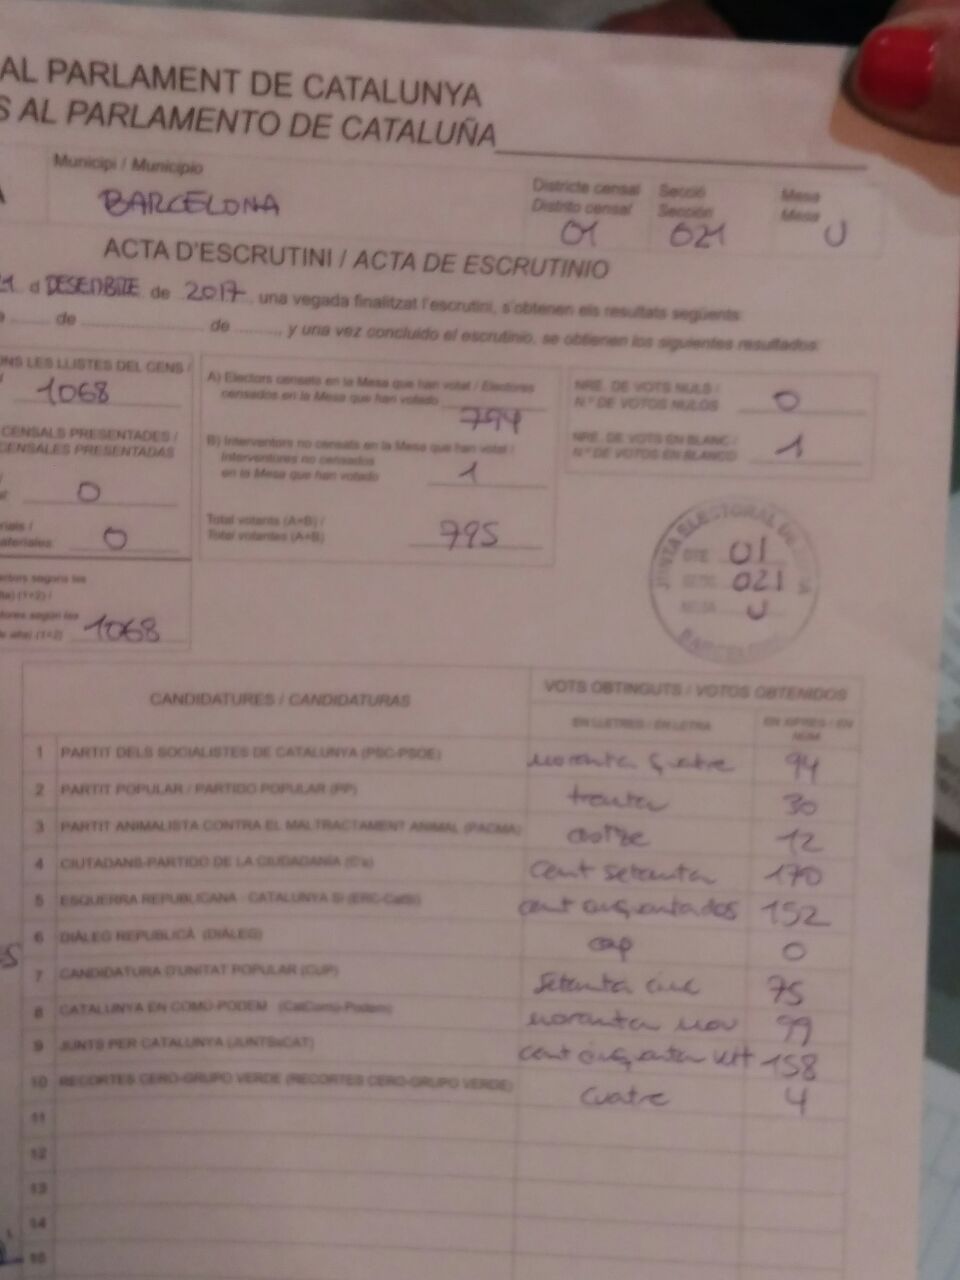 AL PARLAMENT DE CATALUNYA
S AL PARLAMENTO DE CATALUÑA
Municipi / Municipio
BARCELONA
Districte censal
Distrito censal
01
Secció
Sección
021
Mesa
Mesa
U
ACTA D'ESCRUTINI / ACTA DE ESCRUTINIO
21 d DESEMBRE de 2017, una vegada finalitzat l'escrutini, s'obtenen els resultats següents:
a ........ de ........................ de .........., y una vez concluido el escrutinio, se obtienen los siguientes resultados:
ONS LES LLISTES DEL CENS /
1068
CENSALS PRESENTADES /
CENSALES PRESENTADAS
0
ateriales: 0
ectors segons les
ores según las
1068
A) Electors censats en la Mesa que han votat / Electores
censados en la Mesa que han votado
794
B) Interventors no censats en la Mesa que han votat /
Interventores no censados
en la Mesa que han votado
1
Total votants (A+B) /
Total votantes (A+B)
795
NRE. DE VOTS NULS /
N.º DE VOTOS NULOS
0
NRE. DE VOTS EN BLANC /
N.º DE VOTOS EN BLANCO
1
JUNTA ELECTORAL DE ZONA
DTE 01
SECC 021
MESA U
BARCELONA
CANDIDATURES / CANDIDATURAS
VOTS OBTINGUTS / VOTOS OBTENIDOS
EN LLETRES / EN LETRA
EN XIFRES / EN NÚM
1 PARTIT DELS SOCIALISTES DE CATALUNYA (PSC-PSOE) noranta quatre 94
2 PARTIT POPULAR / PARTIDO POPULAR (PP) trenta 30
3 PARTIT ANIMALISTA CONTRA EL MALTRACTAMENT ANIMAL (PACMA) dotze 12
4 CIUTADANS-PARTIDO DE LA CIUDADANÍA (C's) cent setanta 170
5 ESQUERRA REPUBLICANA - CATALUNYA SÍ (ERC-CatSí) cent cinquantados 152
6 DIÀLEG REPUBLICÀ (DIÀLEG) cap 0
7 CANDIDATURA D'UNITAT POPULAR (CUP) setanta cinc 75
8 CATALUNYA EN COMÚ-PODEM (CatComú-Podem) noranta nou 99
9 JUNTS PER CATALUNYA (JUNTSxCAT) cent cinquanta vuit 158
10 RECORTES CERO-GRUPO VERDE (RECORTES CERO-GRUPO VERDE) cuatre 4
11
12
13
14
15